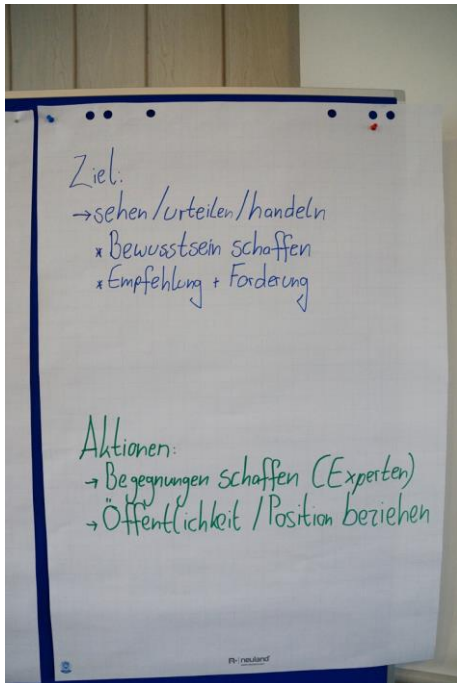 Ziel:
→ sehen/urteilen/handeln
* Bewusstsein schaffen
* Empfehlung + Forderung
Aktionen:
→ Begegnungen schaffen (Experten)
→ Öffentlichkeit / Position beziehen
neuland